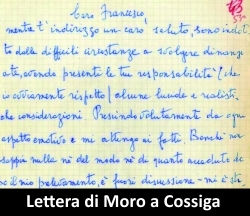 Caro Francesco,
mentre t'indirizzo un caro saluto, sono indot
to dalle difficili circostanze a svolgere dinanzi
a te, avendo presenti le tue responsabilità (che
io ovviamente rispetto) alcune lucide e realisti
che considerazioni. Prescindo volutamente da ogni
aspetto emotivo e mi attengo ai fatti. Benché non
sappia nulla né del modo né di quanto accaduto do
po il mio prelevamento, è fuori discussione - mi è sta
Lettera di Moro a Cossiga